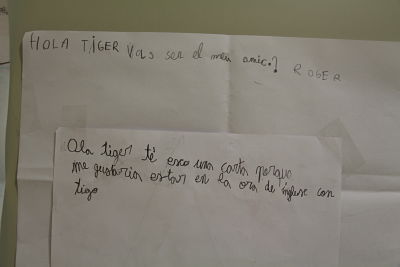 HOLA TIGER Vas ser el meu amic? ROGER
Ola tiger té esco una carta porque
me gustaria estar en la ora de inglese con
tigo